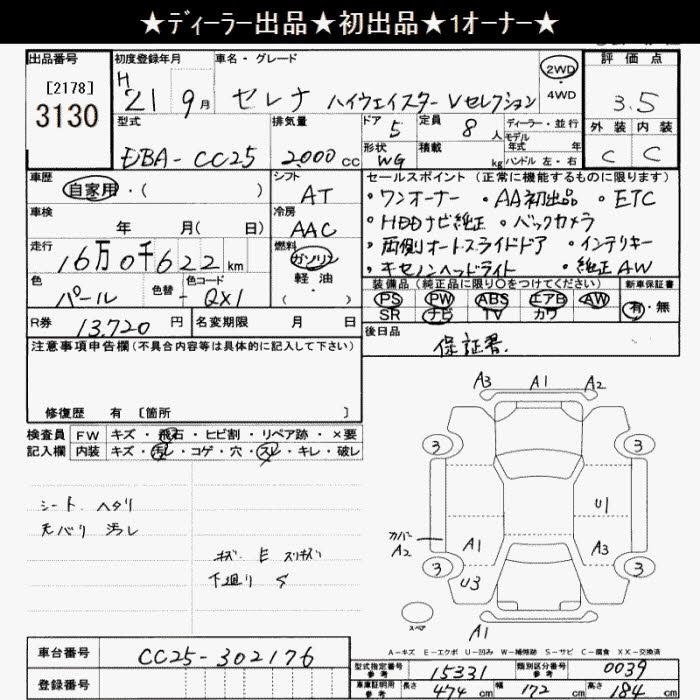 ★ディーラー出品★初出品★1オーナー★
出品番号 初度登録年月 車名・グレード 評価点
[2178] H 2WD
3130 21 9月 セレナ ハイウェイスター Vセレクション 4WD 3.5
型式 排気量 ドア 5 定員 8人 ディーラー・並行 外装 内装
モデル 年式 年
EBA-CC25 2000cc 形状 WG 積載 kg ハンドル 左・右 C C
車歴 シフト セールスポイント (正常に機能するものに限ります)
自家用・( ) AT ・ワンオーナー ・AA初出品 ・ETC
車検 冷房 ・HDDナビ純正 ・バックカメラ
年 月( 日) AAC
走行 燃料 ・両側オートスライドドア ・インテリキー
16万0千622km ガソリン
・キセノンヘッドライト ・純正AW
色 色替 色コード 軽油
パール - QX1 (・)
装備品 (純正品に限り○をつけてください) 新車保証書
PS PW ABS エアB AW 有・無
SR ナビ TV カワ
R券 13,720円 名変期限 月 日
後日品
保証書.
注意事項申告欄(不具合内容等は具体的に記入して下さい)
修復歴 有 [箇所 ]
検査員 FW キズ・飛石・ヒビ割・リペア跡・×要
記入欄 内装 キズ・汚レ・コゲ・穴・スレ・キレ・破レ
シート ヘタリ
天バリ 汚レ
キズ E スリキズ
下廻り S
A3 A1 A2
3 3
U1
カバー
A2 A1 A3
3 3
U3
スペア
A1
A-キズ E-エクボ U-凹み W-補修跡 S-サビ C-腐食 XX-交換済
車台番号 CC25-302176
登録番号
型式指定番号 参考 15331 類別区分番号 参考 0039
車庫証明用 参考 長さ 474cm 幅 172cm 高さ 184cm